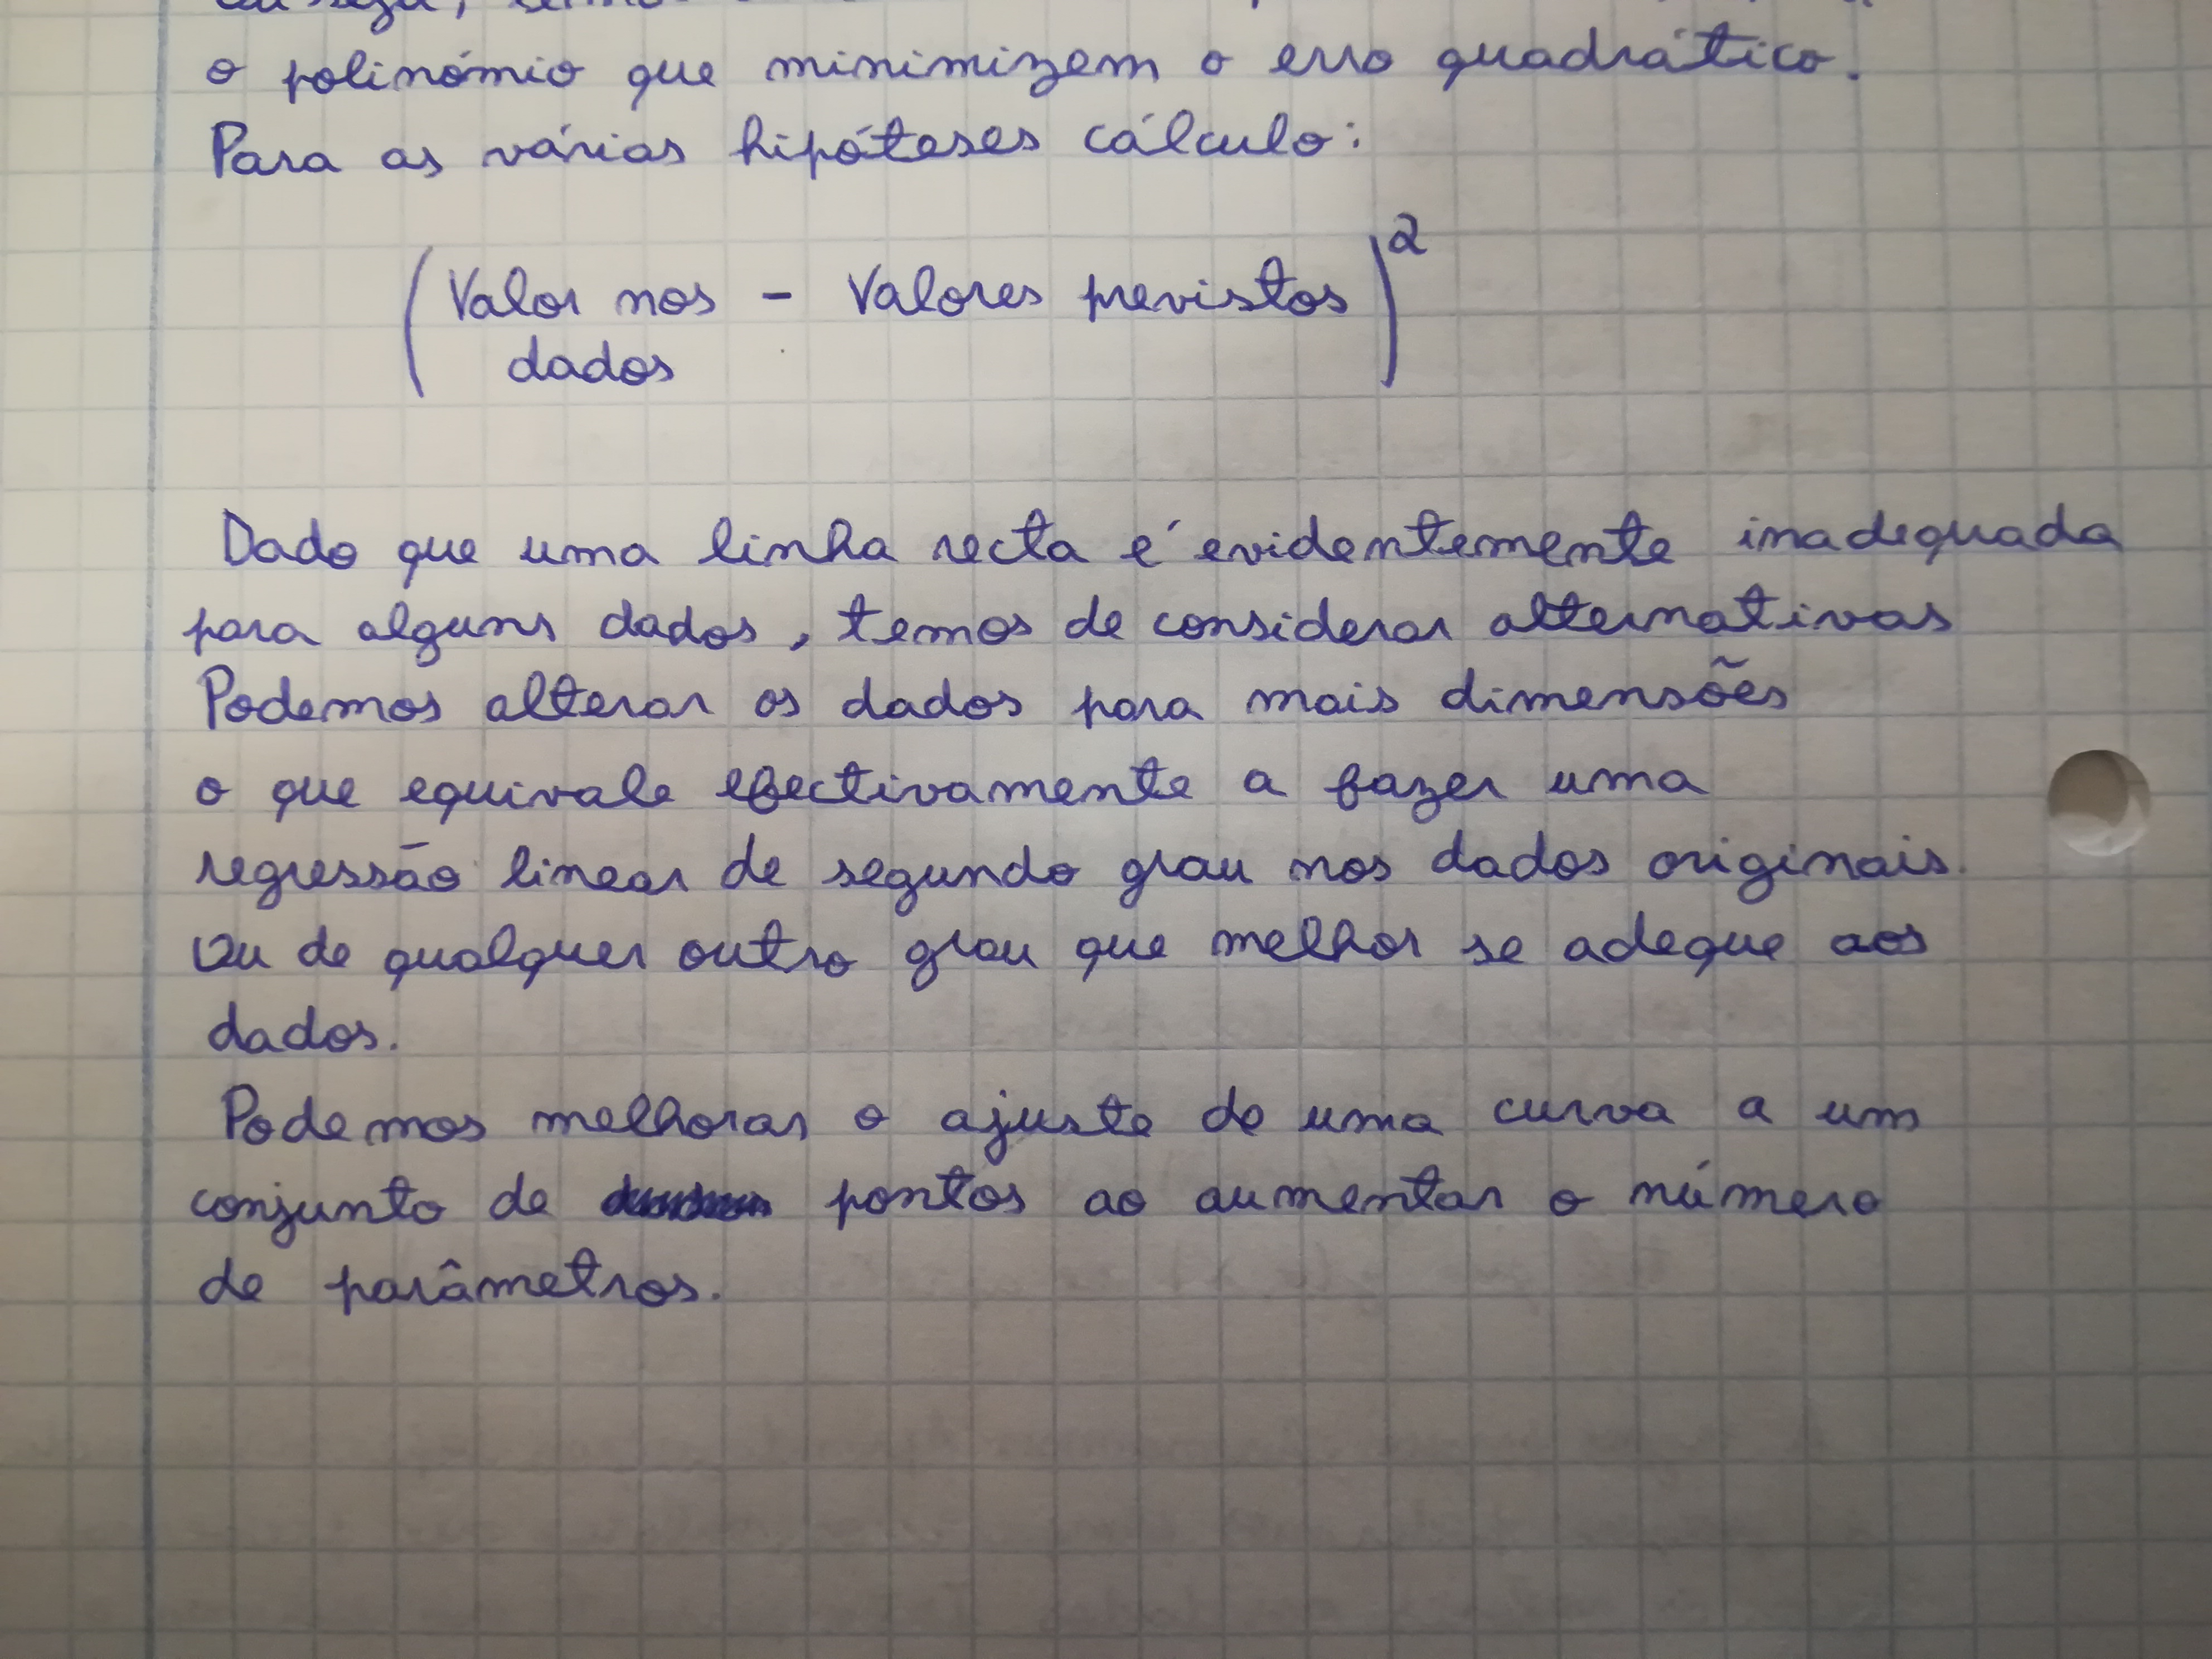 o polinómio que minimizem o erro quadrático.
Para as várias hipóteses cálculo:
(Valor nos - Valores previstos)²
dados
Dado que uma linha recta é evidentemente inadequada
para alguns dados, temos de considerar alternativas
Podemos alterar os dados para mais dimensões
o que equivale efectivamente a fazer uma
regressão linear de segundo grau nos dados originais.
Ou de qualquer outro grau que melhor se adeque aos
dados.
Podemos melhorar o ajuste de uma curva a um
conjunto de pontos ao aumentar o número
de parâmetros.